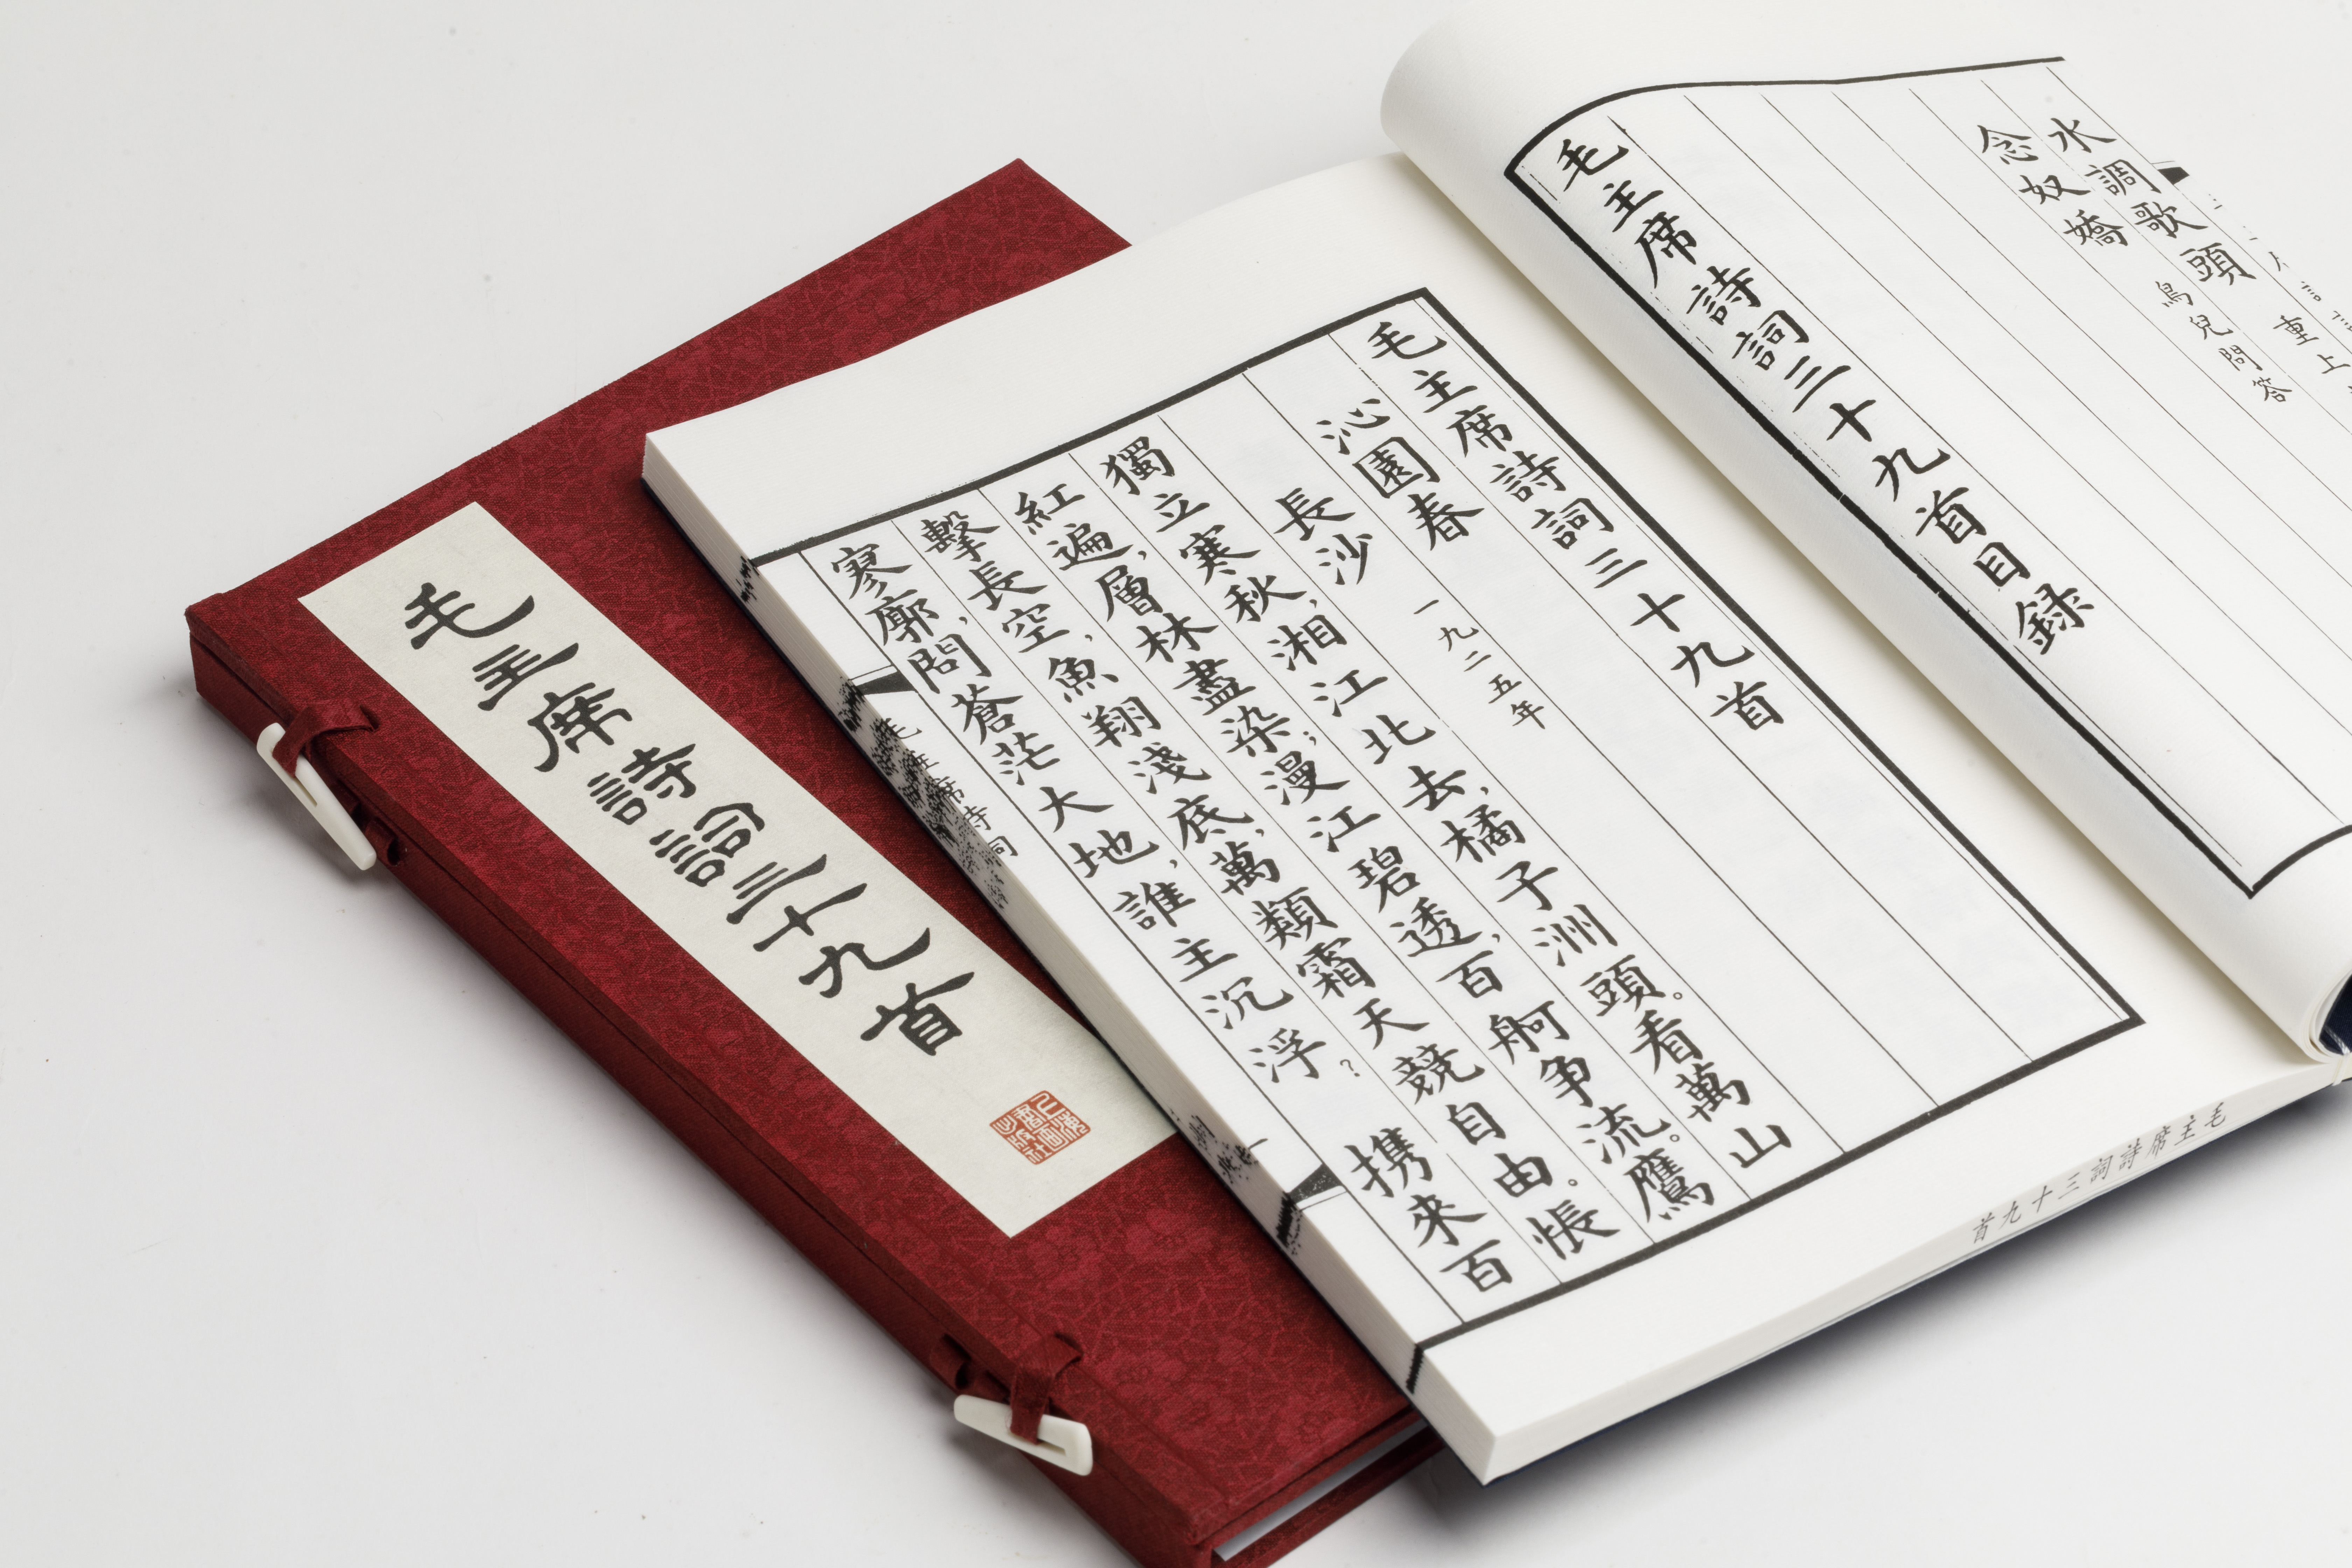 毛主席詩詞三十九首
上海書画出版社
水調歌頭 重上
念奴嬌 鳥兒問答
毛主席詩詞三十九首目録
毛主席詩詞三十九首
沁園春
長沙 一九二五年
獨立寒秋,湘江北去,橘子洲頭。看萬山
紅遍,層林盡染;漫江碧透,百舸争流。鷹
擊長空,魚翔淺底,萬類霜天競自由。悵
寥廓,問蒼茫大地,誰主沉浮? 携來百
毛主席詩詞
毛主席詩詞三十九首